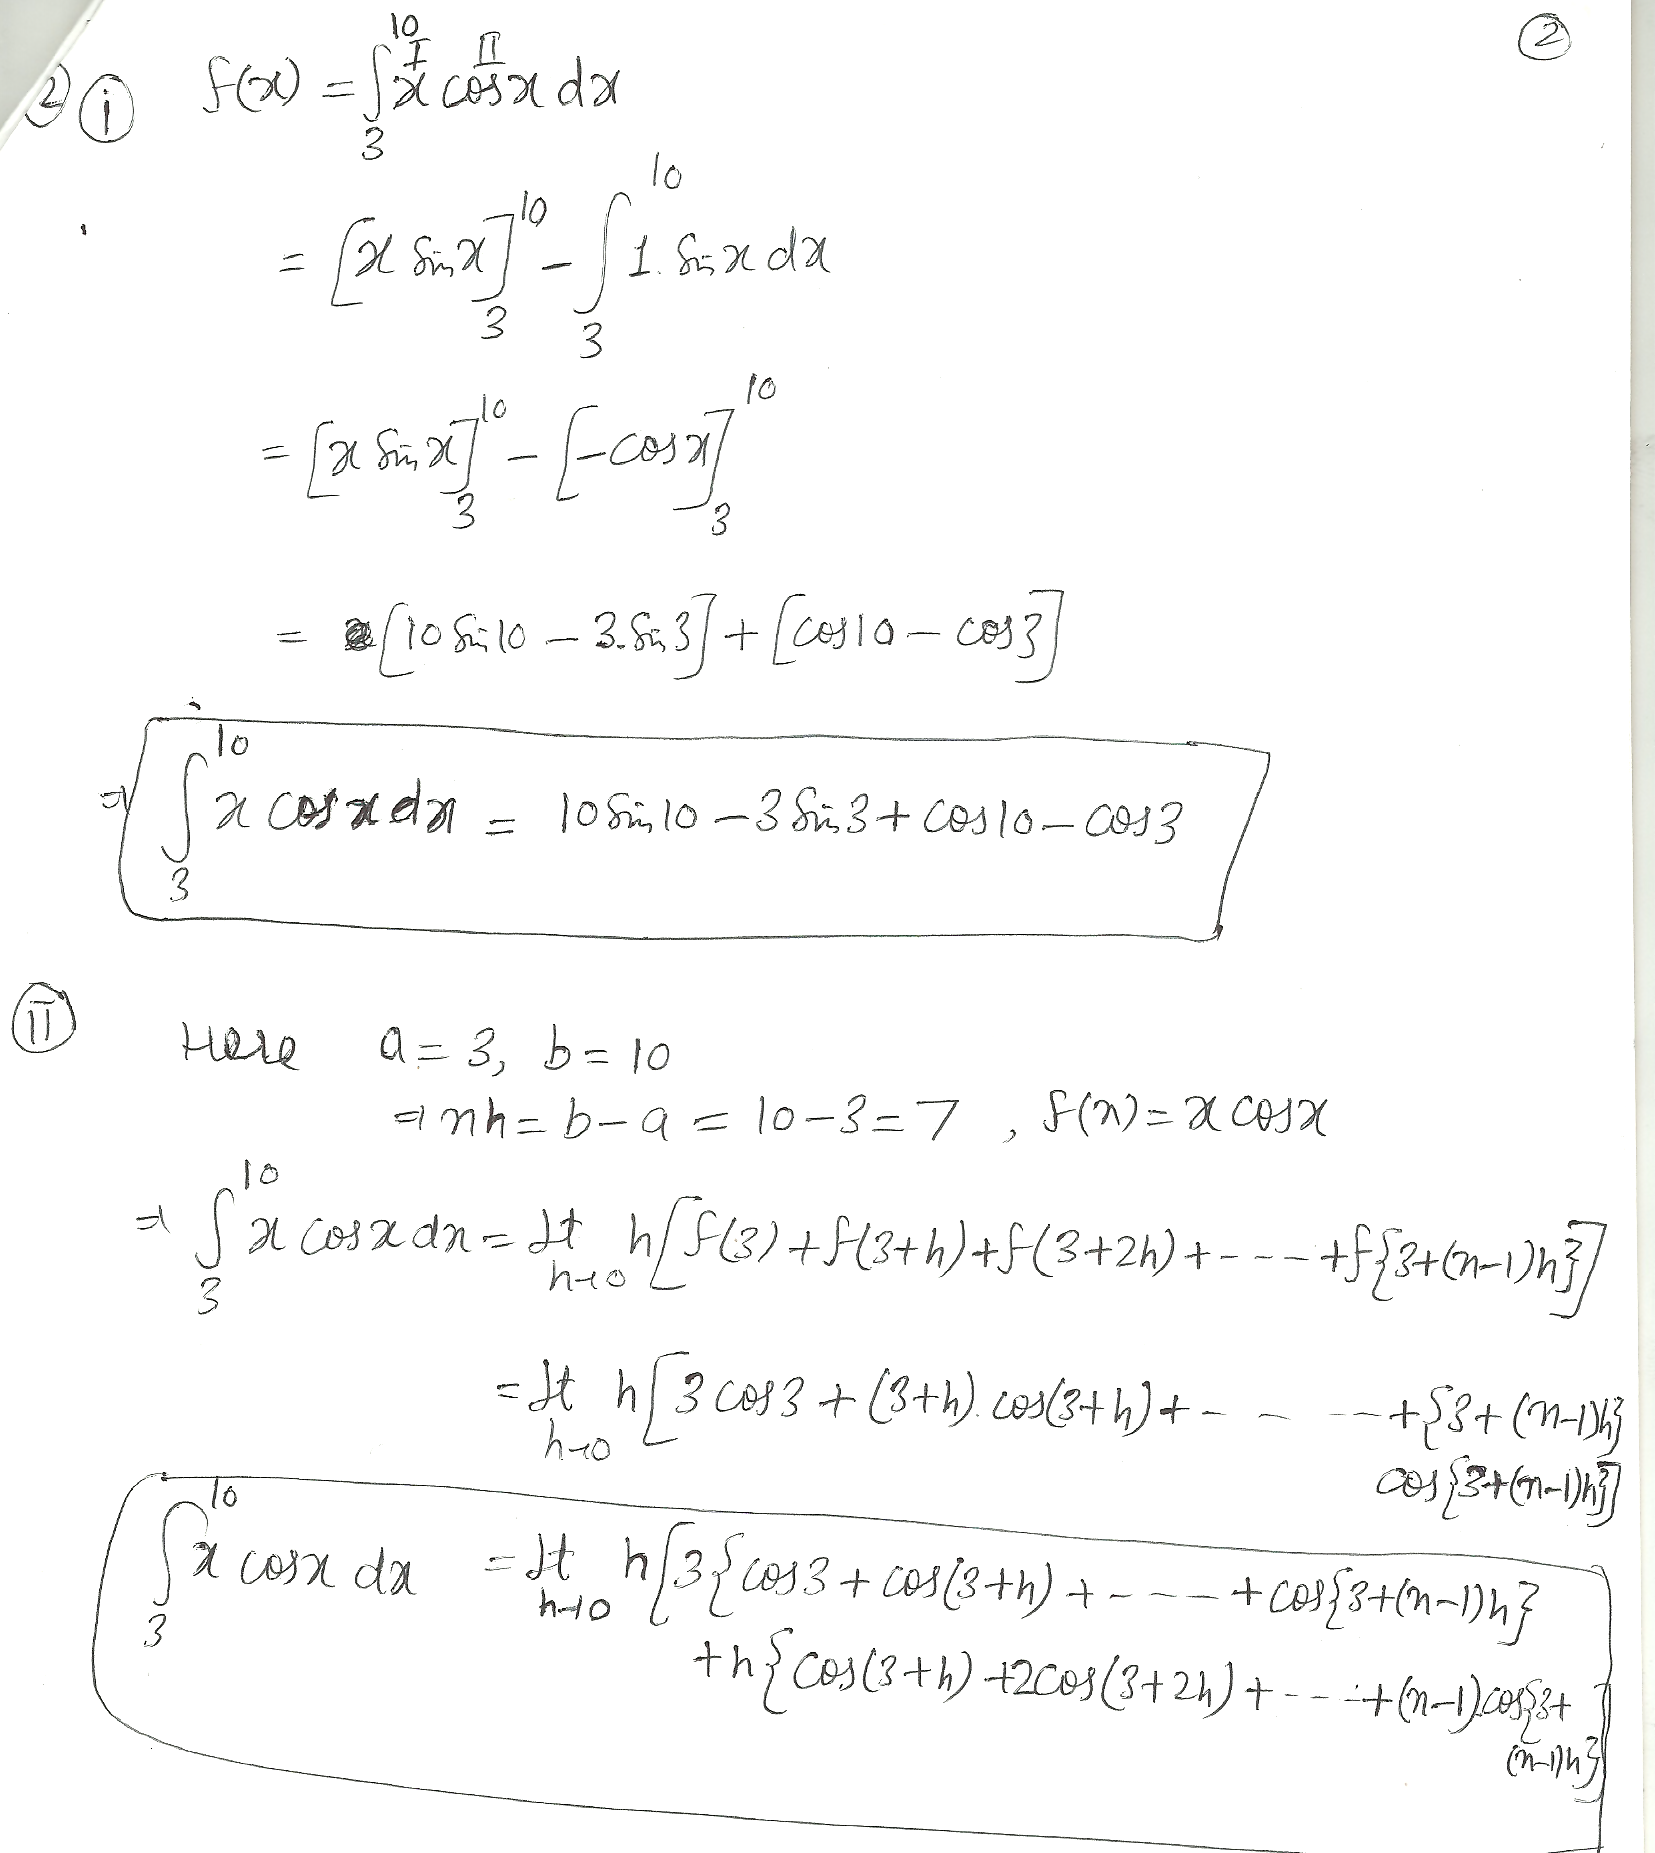 ②
2) ⓘ f(x) = ∫₃¹⁰ x cosx dx
I II
= [x sinx]₃¹⁰ - ∫₃¹⁰ 1. sinx dx
= [x sinx]₃¹⁰ - [-cosx]₃¹⁰
= [10 sin10 - 3.sin3] + [cos10 - cos3]
⇒ ∫₃¹⁰ x cosx dx = 10 sin10 - 3 sin3 + cos10 - cos3
(II) Here a = 3, b = 10
⇒ nh = b-a = 10-3 = 7 , f(x) = x cosx
⇒ ∫₃¹⁰ x cosx dx = lt h→0 h[f(3) + f(3+h) + f(3+2h) + ---- + f{3+(n-1)h}]
= lt h→0 h[3 cos3 + (3+h). cos(3+h) + - - --- + {3+(n-1)h}
cos{3+(n-1)h}]
∫₃¹⁰ x cosx dx = lt h→0 h[3{cos3 + cos(3+h) + ---- + cos{3+(n-1)h}
+h{cos(3+h) +2cos(3+2h) + ---- +(n-1)cos{3+
(n-1)h}